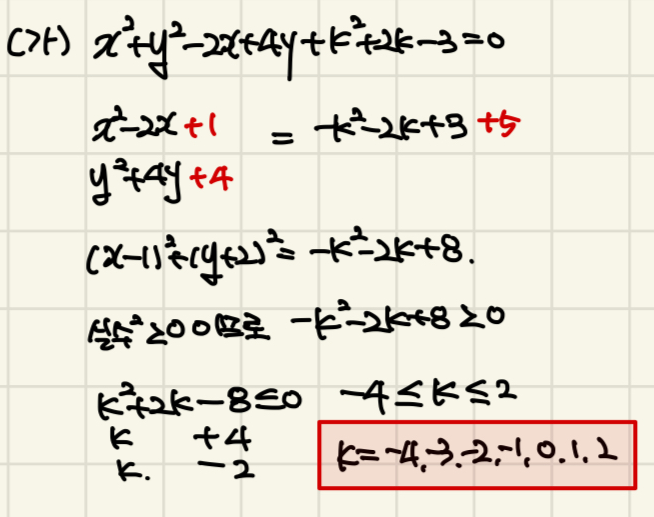 (가) x²+y²-2x+4y+k²+2k-3=0
x²-2x+1 = -k²-2k+3+5
y²+4y+4
(x-1)²+(y+2)²= -k²-2k+8.
실수²≥0 이므로 -k²-2k+8≥0
k²+2k-8≤0 -4≤k≤2
k +4
k. -2
k=-4,-3,-2,-1,0,1,2